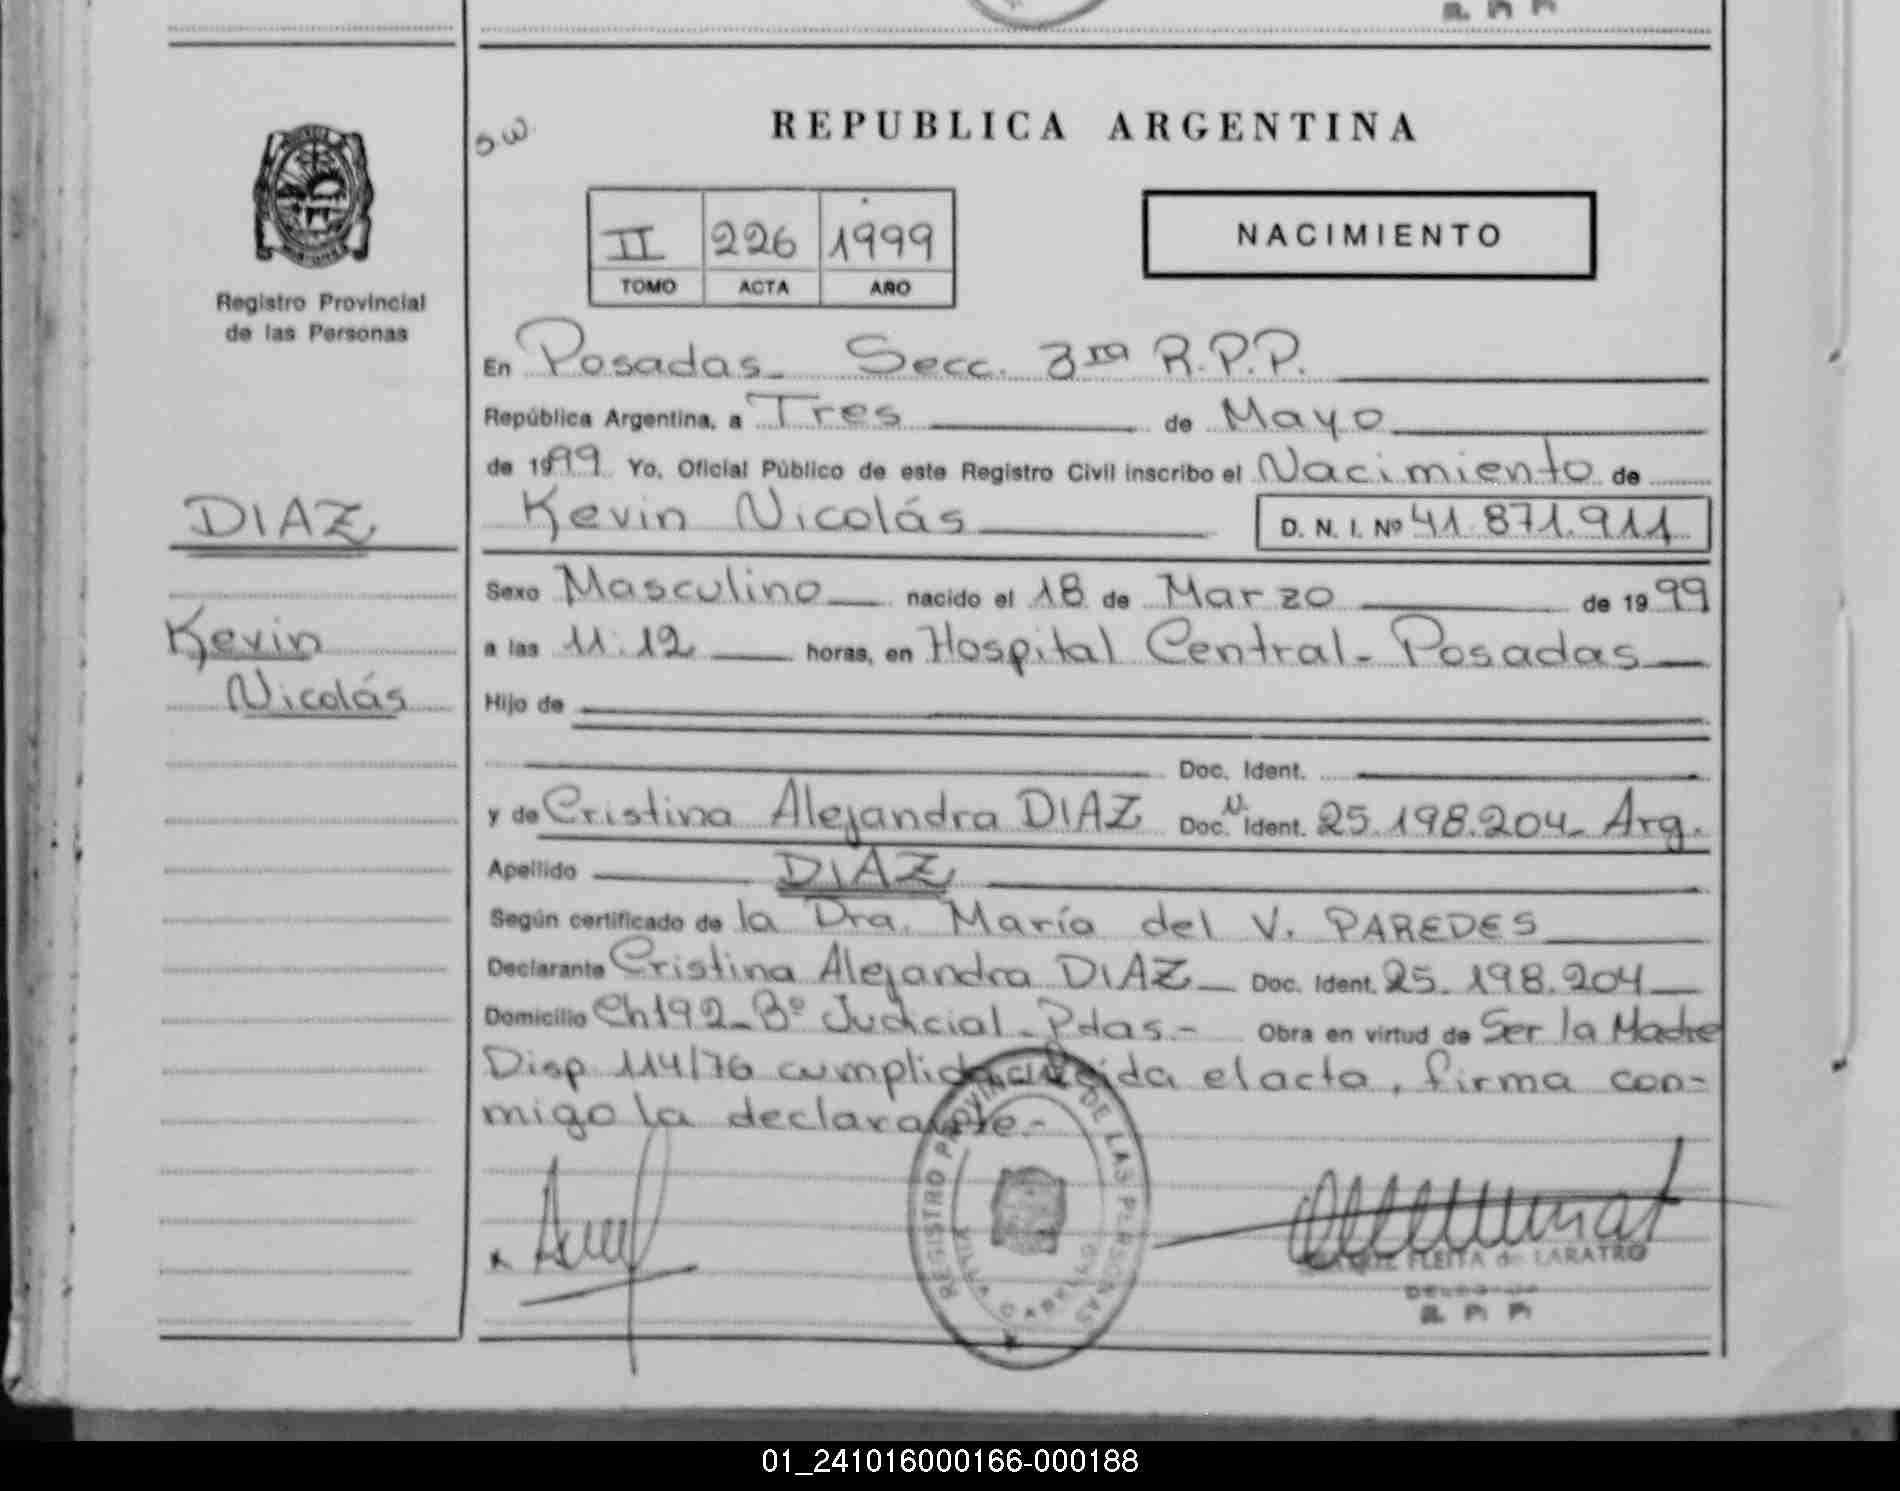 R. P. P.
REPUBLICA ARGENTINA
Registro Provincial
de las Personas
II 226 1999
TOMO ACTA AÑO
NACIMIENTO
En Posadas_ Secc. 3ra R.P.P.
República Argentina, a Tres de Mayo
de 1999 Yo, Oficial Público de este Registro Civil inscribo el Nacimiento de
DIAZ
Kevin Nicolás D. N. I. Nº 41.871.911
Kevin
Nicolás
Sexo Masculino nacido el 18 de Marzo de 1999
a las 11.12 horas, en Hospital Central_ Posadas
Hijo de
Doc. Ident.
y de Cristina Alejandra DIAZ Doc. N. Ident. 25.198.204_ Arg.
Apellido DIAZ
Según certificado de la Dra. María del V. PAREDES
Declarante Cristina Alejandra DIAZ_ Doc. Ident. 25.198.204
Domicilio Ch192_Bº Judicial_Pdas.- Obra en virtud de Ser la Madre
Disp 114/76 cumplida el acta, firma con-
migo la declarante.-
REGISTRO PROVINCIAL DE LAS PERSONAS
VILLA CABELLO
FLEITA de LARATRO
R. P. P.
01_241016000166-000188